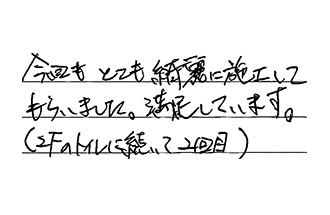 今回も とても 綺麗に施工して
もらいました。満足しています。
(2Fのトイレに続いて2回目)